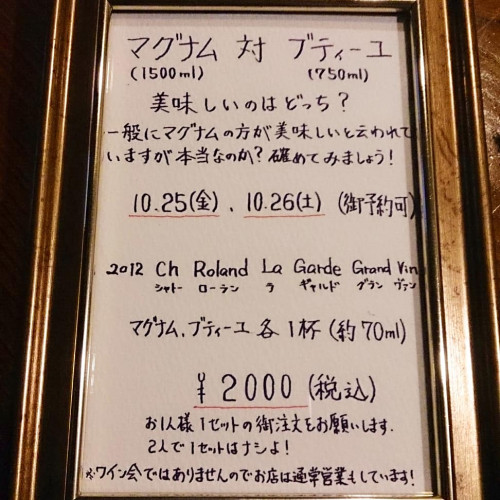 マグナム 対 ブティーユ
(1500ml) (750ml)
美味しいのはどっち?
一般にマグナムの方が美味しいと云われて
いますが本当なのか?確めてみましょう!
10.25(金)、10.26(土) (御予約可)
2012 Ch Roland La Garde Grand Vin
シャトー ローラン ラ ギャルド グラン ヴァン
マグナム、ブティーユ 各1杯(約70ml)
¥2000(税込)
お1人様1セットの御注文をお願いします.
2人で1セットはナシよ!
※ワイン会ではありませんのでお店は通常営業もしています!